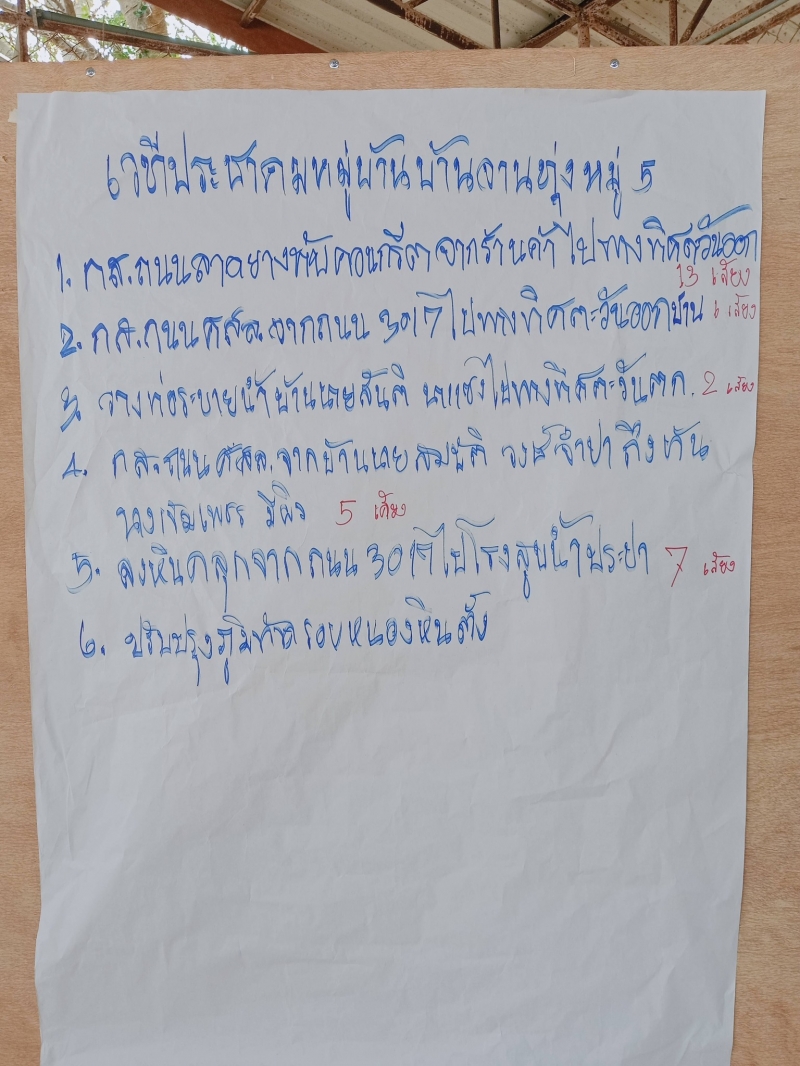 เวทีประชาคมหมู่บ้านบ้านจานทุ่งหมู่ 5
1. กส.ถนนลาดยางทับคอนกรีตจากร้านค้าไปทางทิศตะวันออก
13 เสียง
2. กส.ถนนคสล.จากถนน 3017 ไปทางทิศตะวันออกบ้าน 6 เสียง
3. วางท่อระบายน้ำบ้านนายสันติ ไปทางทิศตะวันตก. 2 เสียง
4. กส.ถนน คสล.จากบ้านนายสมบัติ วงษ์จำปา ถึง
5 เสียง
5. ลงหินคลุกจากถนน 3017 ไปโรงสูบน้ำประปา 7 เสียง
6. ปรับปรุงภูมิทัศรอบหนองหินตั้ง